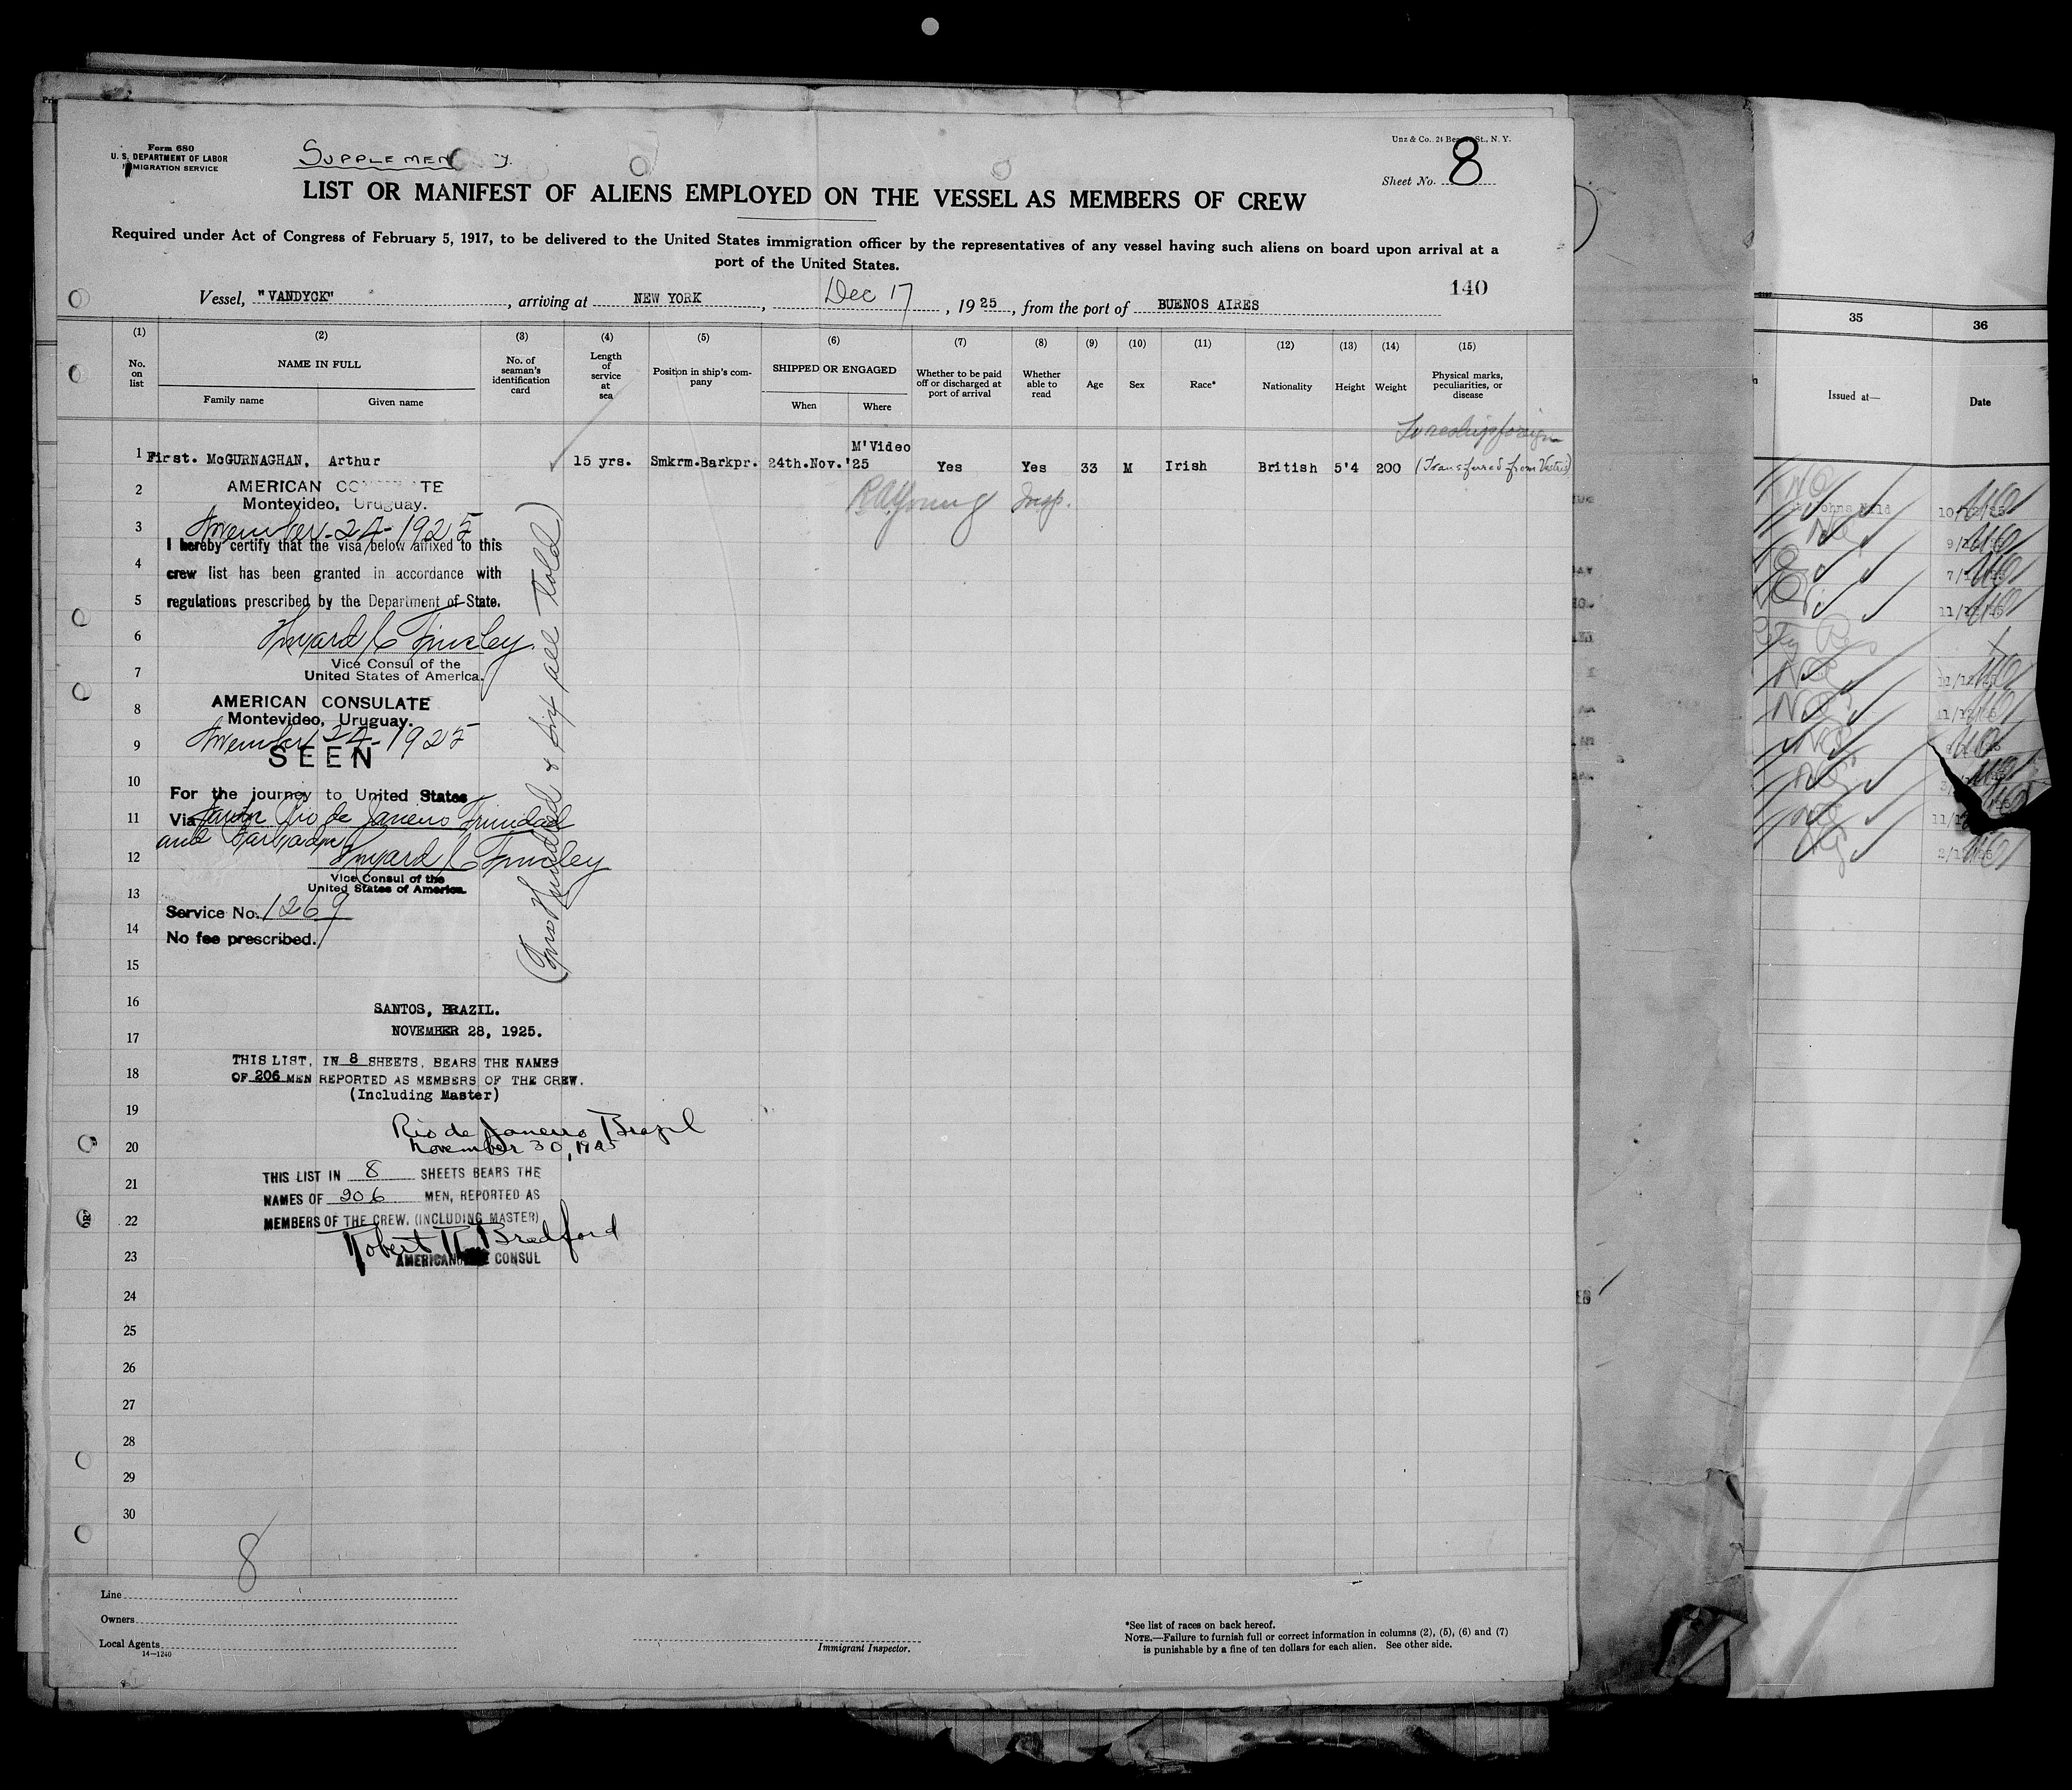 Form 680
U. S. DEPARTMENT OF LABOR
IMMIGRATION SERVICE
SUPPLEMEN
Unz & Co., 24 Bea St., N. Y.
Sheet No. 8
LIST OR MANIFEST OF ALIENS EMPLOYED ON THE VESSEL AS MEMBERS OF CREW
Required under Act of Congress of February 5, 1917, to be delivered to the United States immigration officer by the representatives of any vessel having such aliens on board upon arrival at a
port of the United States.
140
Vessel, "VANDYCK", arriving at NEW YORK, Dec 17, 1925, from the port of BUENOS AIRES
(1) (2) (3) (4) (5) (6) (7) (8) (9) (10) (11) (12) (13) (14) (15)
No. on list
NAME IN FULL
Family name
Given name
No. of seaman's identification card
Length of service at sea
Position in ship's company
SHIPPED OR ENGAGED
When
Where
Whether to be paid off or discharged at port of arrival
Whether able to read
Age
Sex
Race*
Nationality
Height
Weight
Physical marks, peculiarities, or disease
To reship foreign
M'Video
1 First. McGURNAGHAN, Arthur 15 yrs. Smkrm.Barkpr. 24th.Nov.'25 Yes Yes 33 M Irish British 5'4 200 (Transferred from Vestris)
R A Young Insp.
2
AMERICAN CO TE
Montevideo, Uruguay.
3
November-24-1925
I hereby certify that the visa below affixed to this
4
crew list has been granted in accordance with
5
regulations prescribed by the Department of State.
6
7
Vice Consul of the
United States of America.
8
AMERICAN CONSULATE
Montevideo, Uruguay.
9
November 24-1925
SEEN
10
For the journey to United States
11
Via Santos Rio de Janeiro Trinidad
and Barbados
12
Vice Consul of the
United States of America.
13
Service No. 1269
14
No fee prescribed.
(Two Hundred & six all told)
15
16
SANTOS, BRAZIL.
NOVEMBER 28, 1925.
17
THIS LIST, IN 8 SHEETS, BEARS THE NAMES
18
OF 206 MEN REPORTED AS MEMBERS OF THE CREW.
(Including Master)
19
Rio de Janeiro Brazil
20
November 30, 1925
21
THIS LIST IN 8 SHEETS BEARS THE
NAMES OF 206 MEN, REPORTED AS
22
MEMBERS OF THE CREW. (INCLUDING MASTER)
Robert R Bradford
23
AMERICAN CONSUL
24
25
26
27
28
29
30
8
Line
Owners
Local Agents
14—1240
Immigrant Inspector.
*See list of races on back hereof.
NOTE.—Failure to furnish full or correct information in columns (2), (5), (6) and (7)
is punishable by a fine of ten dollars for each alien. See other side.
35
36
Issued at—
Date